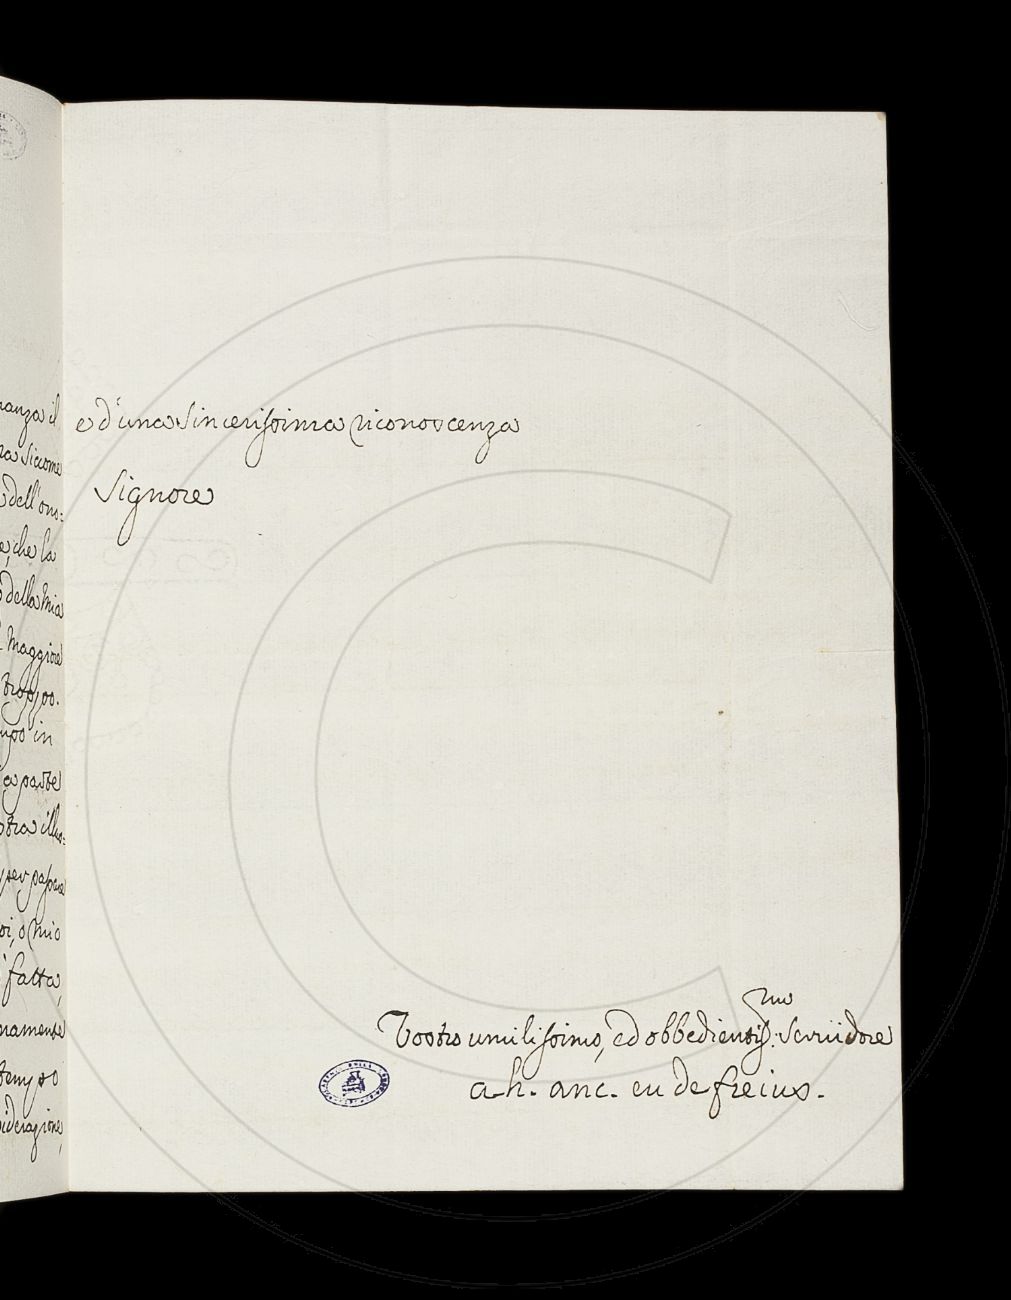 nanza il
ra siccome
dell'ono:
e, che la
della mia
maggiore
troppo.
in
a parte
stra illu:
per passare
oi, o mio
fatta,
namente
tempo
siderazione,
e d'una sincerissima riconoscenza
Signore
Vostro umilissimo, ed obbedientiss:mo Servidore
a. h. anc. eu de frejus.